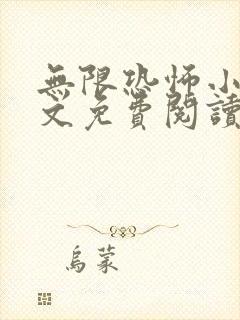 無限恐怖小
文免費閱讀
烏蒙